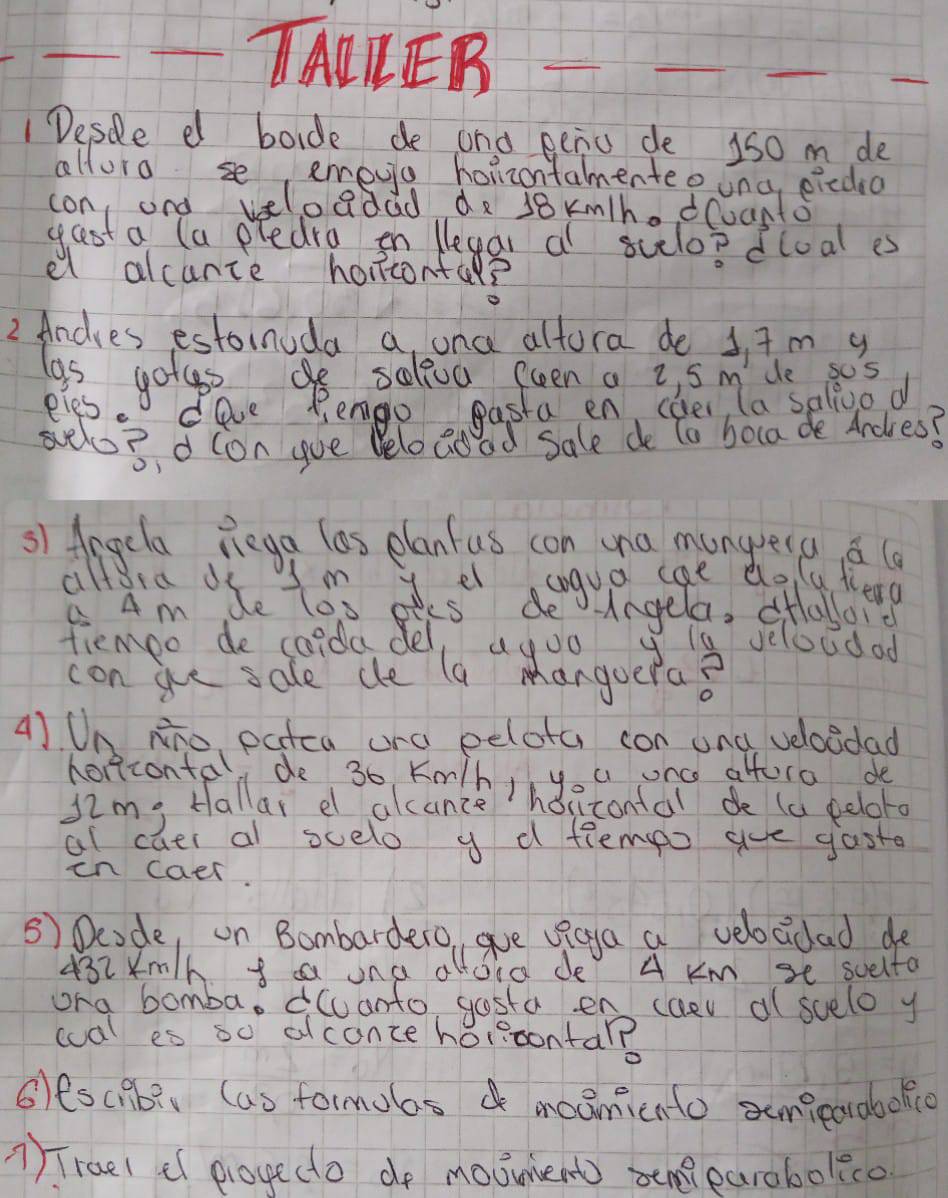 TALLER
1 Desde el borde de una peña de 150 m de
altura se empuja horizontalmente una piedra
con una velocidad de 18 km/h. ¿Cuanto
gasta la piedra en llegar al suelo? ¿Cual es
el alcance horizontal?
2 Andres estornuda a una altura de 1,7 m y
las gotas de saliva caen a 2,5 m de sus
pies. ¿Que tiempo gasta en caer la saliva al
suelo?, ¿Con que velocidad sale de la boca de Andres?
3) Angela riega las plantas con una manguera a la
altura de 1 m y el agua cae a la tierra
a 4 m de los pies de Angela. ¿Hallar el
tiempo de caida del agua y la velocidad
con que sale de la manguera?
4). Un niño patea una pelota con una velocidad
horizontal de 36 Km/h, y a una altura de
12 m; Hallar el alcance horizontal de la pelota
al caer al suelo y el tiempo que gasta
en caer.
5) Desde un Bombardero, que viaja a velocidad de
432 Km/h y a una altura de 4 Km se suelta
una bomba. ¿Cuanto gasta en caer al suelo y
cual es su alcance horizontal?
6) Escribir las formulas de movimiento semiparabolico
7) Traer el proyecto de movimiento semiparabolico.